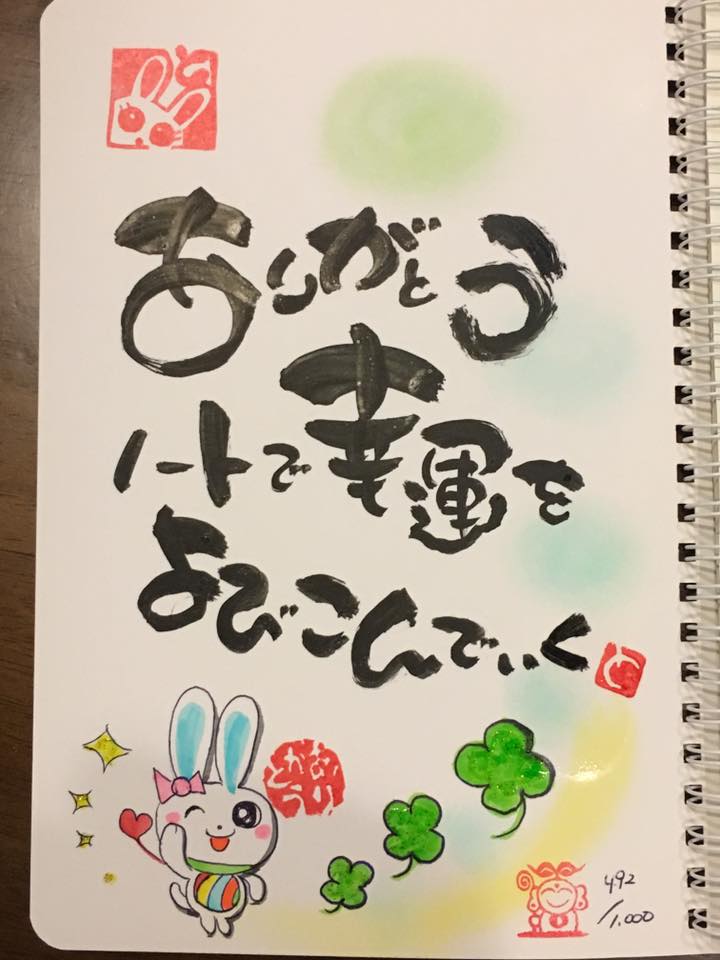 ありがとう
ノートで幸運を
よびこんでいく
492
/1.000